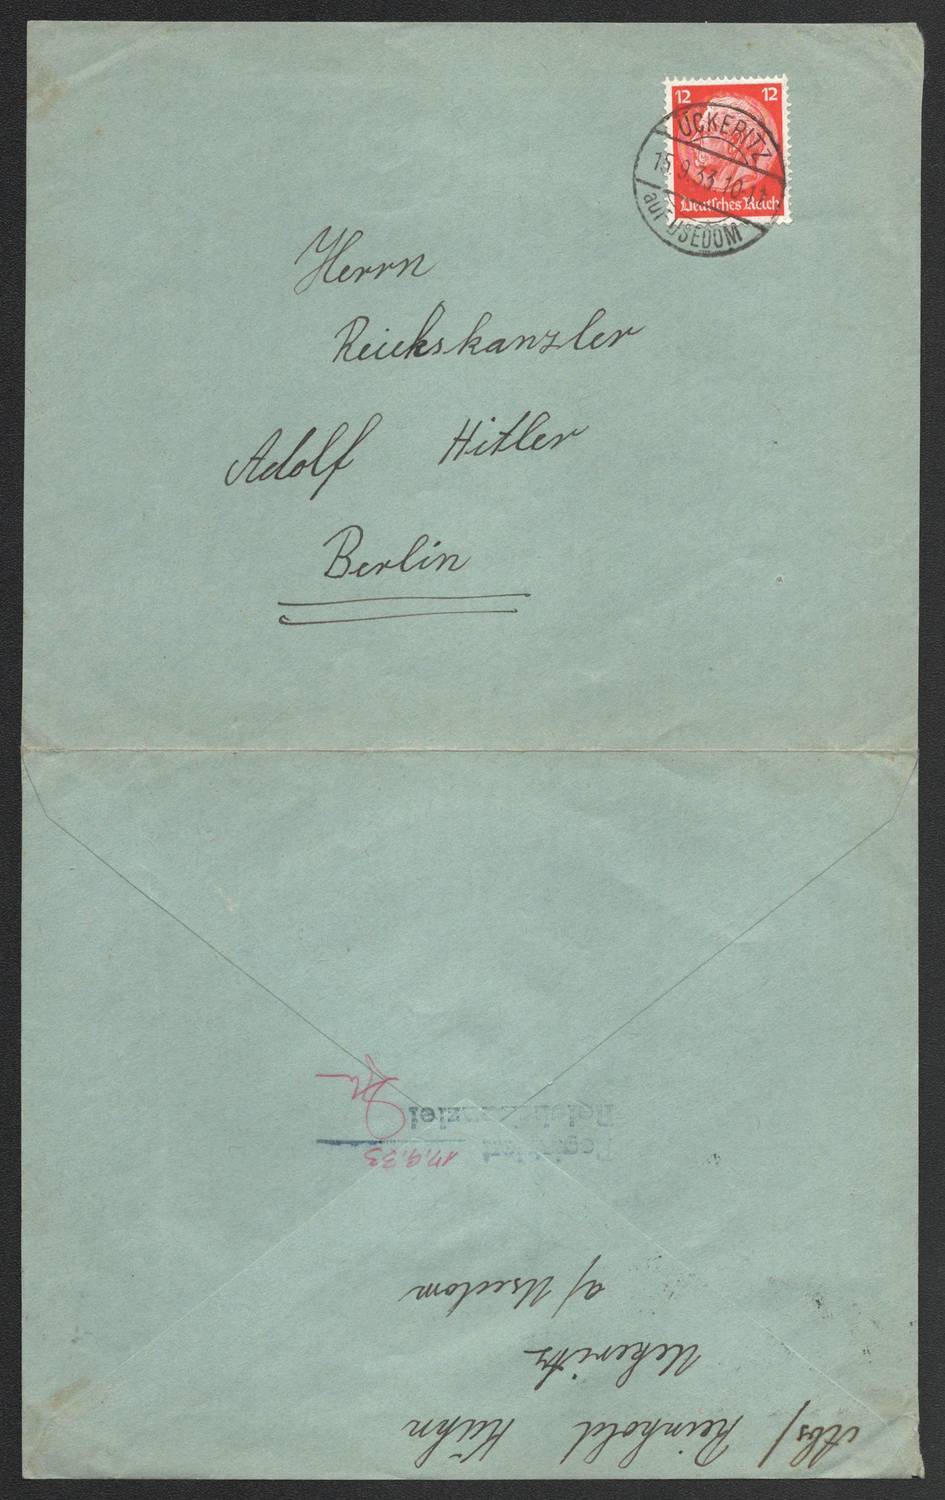 12 12
Deutsches Reich
ÜCKERITZ
15.9.33.10-11
auf USEDOM
Herrn
Reichskanzler
Adolf Hitler
Berlin
Abs/ Reinhold Kühn
Uekeritz
a/ Usedom
17.9.33
Reichskanzlei